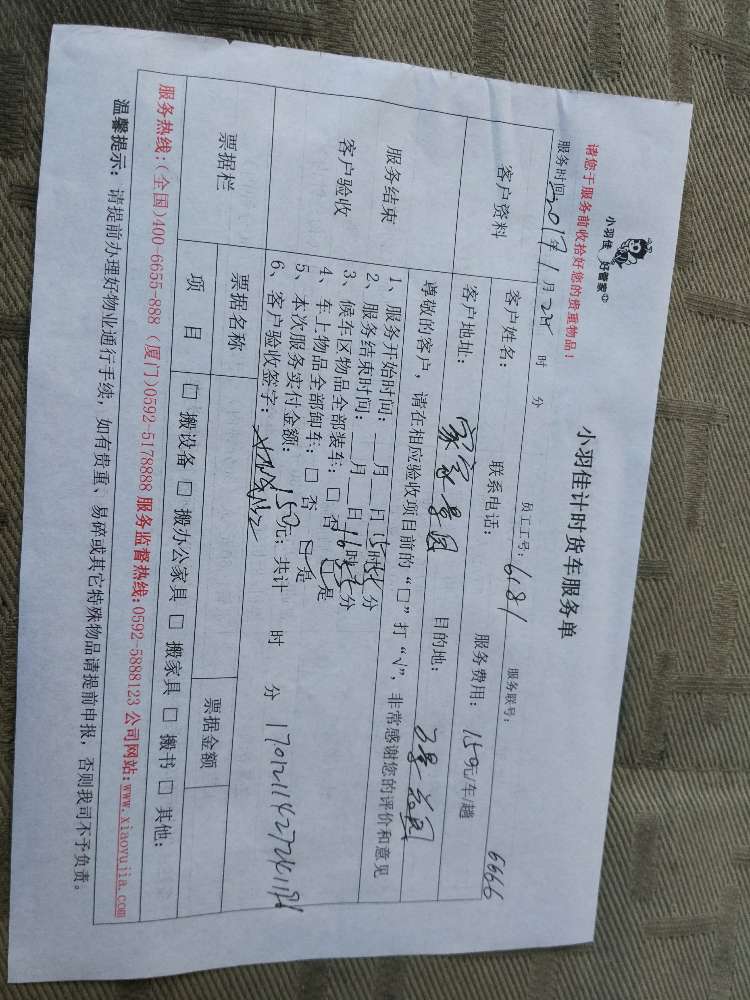 小羽佳 好管家
请您于服务前收拾好您的贵重物品！
小羽佳计时货车服务单
服务时间：2017年1月22日 时 分 员工工号：6181 服务联号：
6666
客户资料 客户姓名： 联系电话： 服务费用：150元/车/趟
客户地址： 家家景园 目的地：
尊敬的客户，请在相应验收项目前的“□”打“√”，非常感谢您的评价和意见
服务结束
客户验收
1、服务开始时间：__月__日15时 分
2、服务结束时间：__月__日16时 分
3、候车区物品全部装车：□ 否 □是
4、车上物品全部卸车：□ 否 □是
5、本次服务实付金额： 150元；共计 时 分
6、客户验收签字：
票据栏 票据名称 票据金额
项 目 □ 搬设备 □ 搬办公家具 □ 搬家具 □ 搬书 □ 其他：
服务热线：(全国)400-6655-888 (厦门)0592-5178888 服务监督热线：0592-5888123 公司网站：www.xiaoyujia.com
温馨提示：请提前办理好物业通行手续，如有贵重、易碎或其它特殊物品请提前申报，否则我司不予负责。